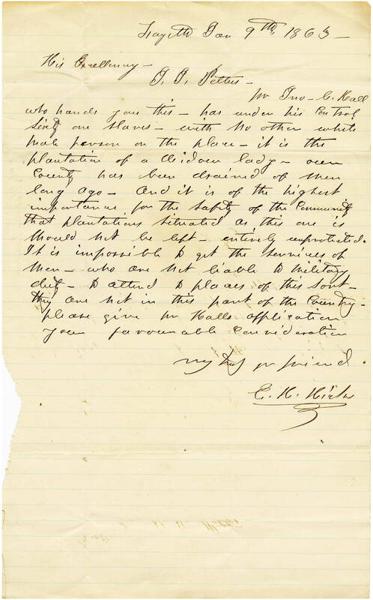 Fayette Jan 9th 1863 –
His Excellency –
J. J. Pettus –
Mr Jno – C. Hall
who hands you this – has under his Control
Sixty one slaves – with No other white
male person on the place – it is the
plantation of a Widow lady – our
County has been drained of men
long ago – And it is of the highest
importance for the safety of the Community
that plantations situated as this one is
Should not be left – entirely unprotected.
It is impossible to get the services of
Men – who are not liable to Military
duty – to attend to places of this sort –
they are not in this part of the Country –
please give Mr Halls application
your favourable Consideration
friend